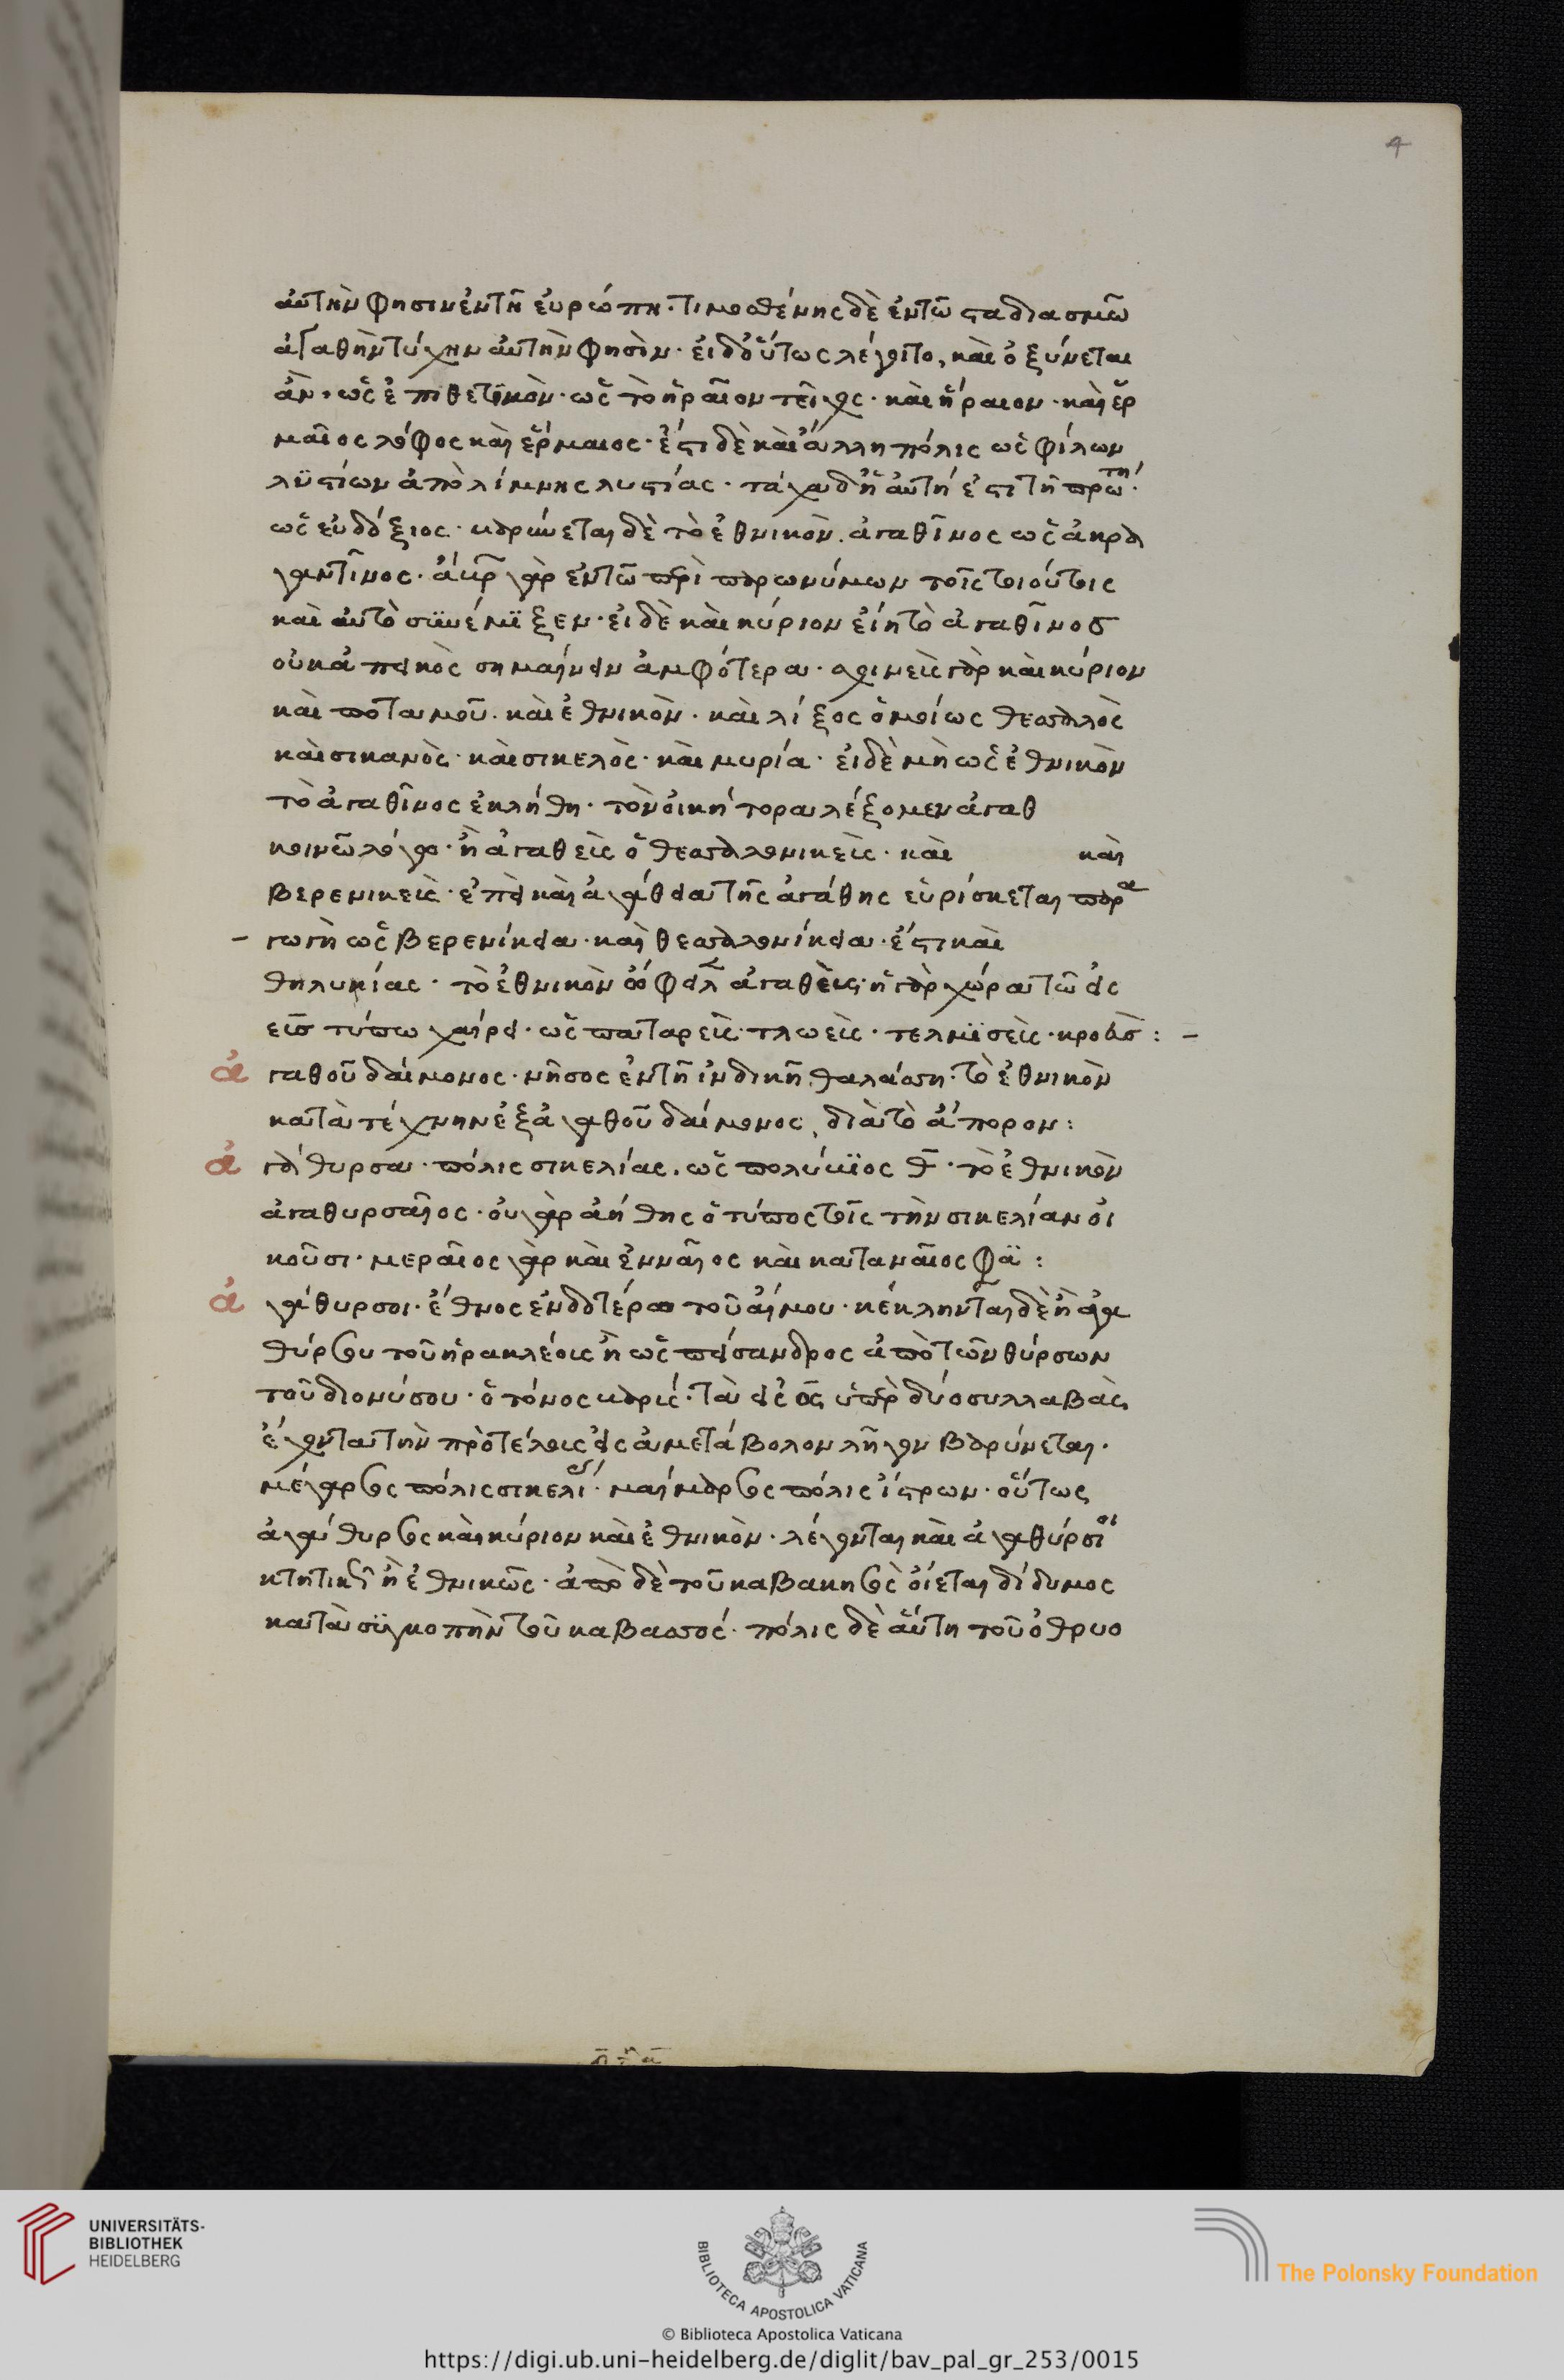 4
αὐτὴν φησιν ἐν τῆ ἐυρώπη· τιμοσθένης δὲ ἐν τῶ σταδιασμῶ
ἀγαθὴν τύχην ἀυτὴν φησὶν· ἐι δ' ὅυτως λέγοιτο, καὶ ὀξύνεται
ἂν· ὡς ἐπιθετικὸν· ὡς τὸ ἡραῖον τεῖχος· καὶ ἥραιον· καὶ ἑρ
μαῖος λόφος καὶ ἕρμαιος· ἔστι δὲ καὶ ἄλλη πόλις ὡς φίλων
λϋστίων ἀπὸ λίμνης λυστίας· τάχα δ' ἡ ἀυτή ἐστι τῆ πρώτη·
ὡς εὐδόξιος· βαρύνεται δὲ τὸ ἐθνικὸν. ἀγαθῖνος ὡς ἀκρα
γαντῖνος· γὰρ ἐν τῶ περὶ παρωνύμων τοῖς τοιούτοις
καὶ ἀυτὸ συνέμϊξεν· ἐι δὲ καὶ κύριον ἐίη τὸ ἀγαθῖνος
οὐκ ἀπεικὸς σημαίνειν ἀμφότερα· γὰρ καὶ κύριον
καὶ ποταμοῦ. καὶ ἐθνικὸν· καὶ λίξος ὁμοίως θεσσαλὸς
καὶ σικανὸς· καὶ σικελὸς· καὶ μυρία· ἐι δὲ μὴ ὡς ἐθνικὸν
τὸ ἀγαθῖνος ἐκλήθη· τὸν ὀικήτορα λέξομεν ἀγαθ
κοινῶ λόγω· ἢ ἀγαθεὶς ὁ θεσσαλονικεὶς· καὶ καὶ
βερενικεὶς· ἐπεὶ καὶ ἀγάθεια τῆς ἀγάθης εὑρίσκεται παρα
γωγὴ ὡς βερενίκεια· καὶ θεσσαλονίκεια· ἔστι καὶ
θηλυκίας· τὸ ἐθνικὸν ἀγαθεὺς· ἡ γὰρ χώρα τῶ εἰς
εὺς τύπω χαίρει· ὡς παταρεὶς· τλωεὶς· τελμϊσεὶς· :-
ἀγαθοῦ δαίμονος· νῆσος ἐν τῆ ἰνδικῆ θαλάσση· τὸ ἐθνικὸν
κατὰ τέχνην ἐξ ἀγαθοῦ δαίμονος, διὰ τὸ ἄπορον:
ἀγάθυρσα· πόλις σικελίας. ὡς πολύβϊος θ· τὸ ἐθνικὸν
ἀγαθυρσαῖος· ὀυ γὰρ ἀήθης ὁ τύπος τοῖς τὴν σικελίαν ὀι
κοῦσι· μεραῖος γὰρ καὶ ἐνναῖος καὶ καταναῖος φα:
ἀγάθυρσοι· ἔθνος ἐνδοτέρω τοῦ ἁίμου· κέκληνται δὲ ἢ ἀγα
θύρσου τοῦ ἡρακλέοις ἢ ὡς πείσανδρος ἀπὸ τῶν θύρσων
τοῦ διονύσου· ὁ τόνος βαρύς· τὰ εἰς ος ὑπὲρ δύο συλλαβὰς
ἔχοντα τὴν πρὸ τέλοις εἰς ἀμετάβολον λῆγον βαρύνεται·
μέγαρσος πόλις σικελίας· μαίναρσος πόλις ἴστρων· οὕτως
ἀγάθυρσος καὶ κύριον καὶ ἐθνικὸν· λέγονται καὶ ἀγαθύρσιοι
κτητικῶς ἢ ἐθνικῶς· ἀπὸ δὲ τοῦ καβακησὸς ὀίεται δίδυμος
κατὰ συγκοπὴν τοῦ καβασσός· πόλις δὲ ἅυτη τοῦ ὀθρυο
UNIVERSITÄTS-
BIBLIOTHEK
HEIDELBERG
BIBLIOTECA APOSTOLICA VATICANA
The Polonsky Foundation
© Biblioteca Apostolica Vaticana
https://digi.ub.uni-heidelberg.de/diglit/bav_pal_gr_253/0015